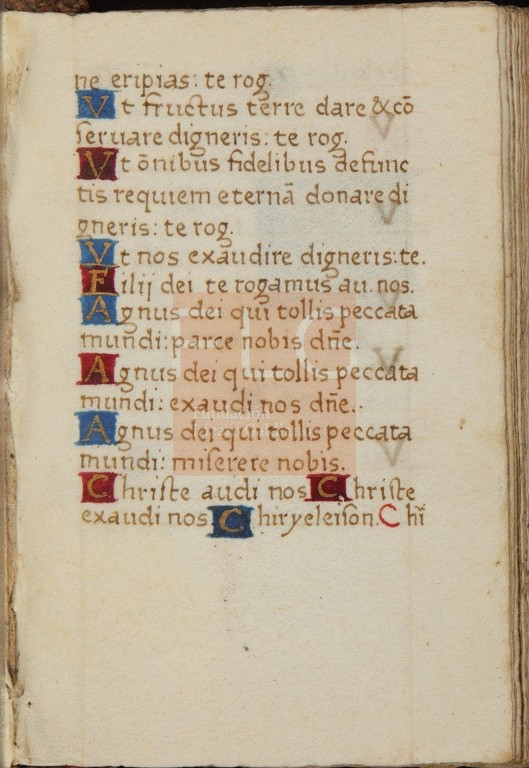 ne eripias: te rog.
Vt fructus terre dare & cō
ſeruare digneris: te rog.
Vt ōnibus fidelibus defunc
tis requiem eternā donare di
gneris: te rog.
Vt nos exaudire digneris: te.
Filij dei te rogamus au. nos.
Agnus dei qui tollis peccata
mundi: parce nobis dn̄e.
Agnus dei qui tollis peccata
mundi: exaudi nos dn̄e.
Agnus dei qui tollis peccata
mundi: miſerere nobis.
Chriſte audi nos Chriſte
exaudi nos Chiryeleiſon. Chī